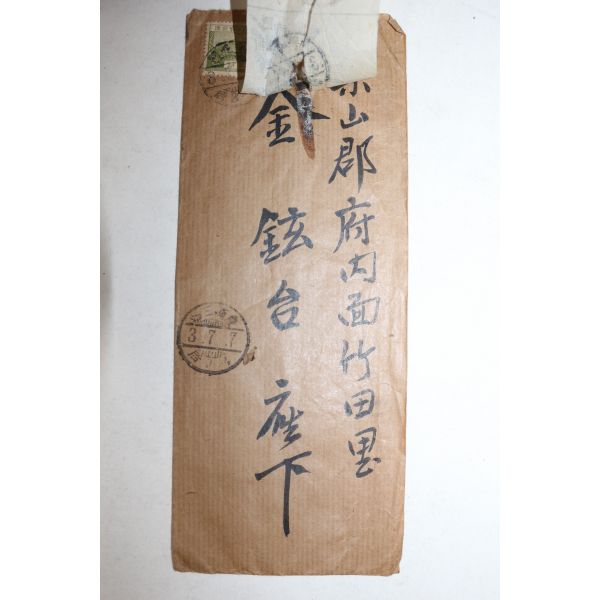 山郡府内面竹田里
金鉉台座下
3.7.7